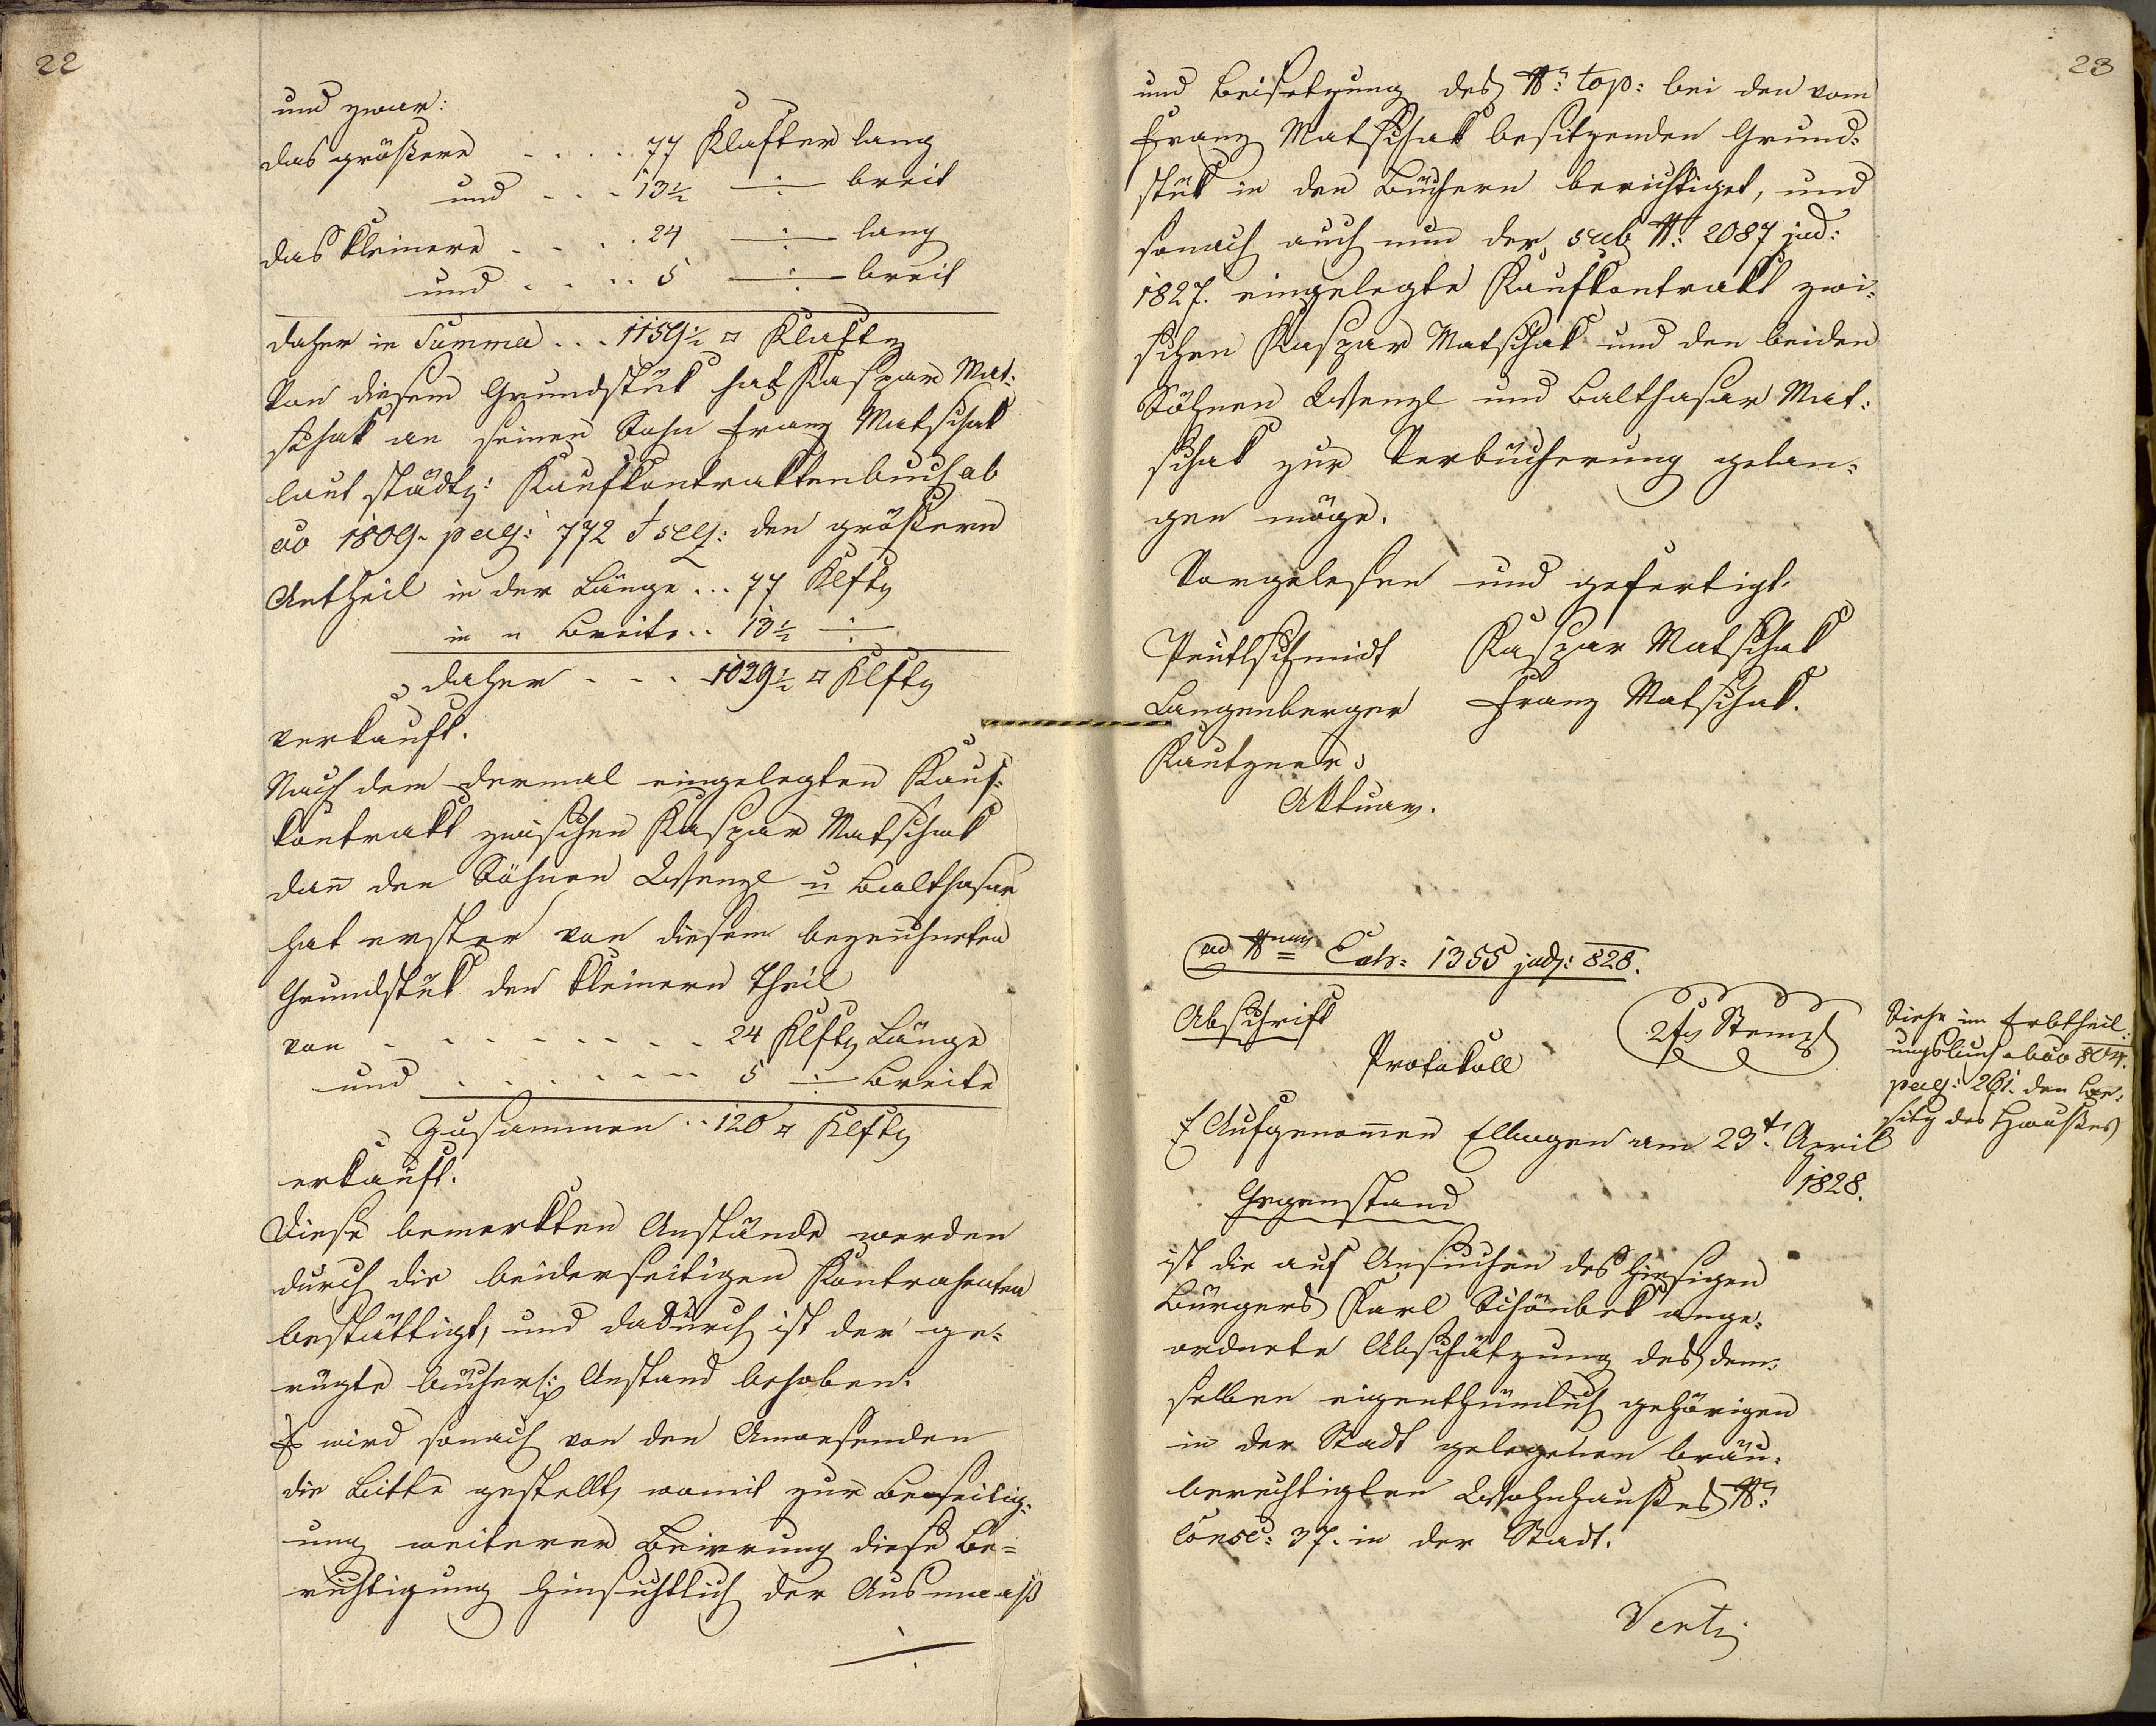 22
und zwar:
das größere . . . . 77 Klafter lang
und . . . 13½ ÷ breit
das kleinere . . . . 24 ÷ lang
und . . . . 5 ÷ breit
daher in Summa . . . 1159½ □ Klaftr
Von diesem Grundstük hat Kaspar Mat:
schak an seinen Sohn Franz Matschak
laut städtr: Kaufkontraktenbuch ab
ao 1809. pag: 772 & seq: den größern
Antheil in der Länge ... 77 Klftr
in " Breite .. 13½ ÷
daher . . . 1029½ □ Klftr
verkauft.
Nach dem dermal eingelegten Kauf:
kontrakt zwischen Kaspar Matschak
dan̄ den Söhnen Wenzl u Balthasar
hat erster von diesem bezeichneten
Grundstük den kleinern Theil
von . . . . . . . . 24 Klftr Länge
und . . . . . . . 5 ÷ Breite
Zusammen .. 120 □ Klftr
erkauft.
Diese bemerkten Anstände werden
durch die beiderseitigen Kontrahenten
bestättigt, und dadurch ist der ge=
rügte bücherl: Anstand behoben.
Es wird sonach von den Anwesenden
die Bitte gestellt, womit zur Beseitig:
ung weiterer Beirrung diese Be=
richtigung hinsichtlich der Ausmaaß
÷
23
und Beisetzung des No: top: bei den vom
Franz Matschak besitzenden Grund:
stük in den Büchern berichtiget, und
sonach auch nun der sub No: 2087 jud:
1827. eingelegte Kaufkontrakt zwi:
schen Kaspar Matschak und den beiden
Söhnen Wenzl und Balthasar Mat:
schak zur Verbücherung gelan=
gen möge.
Vorgelesen und gefertigt.
Peutlschmidt Kaspar Matschak
Langenberger Franz Matschak.
Kautzner,
Aktuar.
ad Num Exh: 1355 jud: 828.
Abschrift
2fr Stempl
Protokoll
Siehe im Erbtheil:
ungsbuch abao 804.
pag: 261. den Be:
sitz des Haußes
Aufgenom̄en Ellbogen am 23t April
1828.
Gegenstand
ist die auf Ansuchen des hiesigen
Bürgers Karl Schönbek ange:
ordnete Abschätzung des dem:
selben eigenthümlich gehörigen
in der Stadt gelegenen bräu:
berechtigten Wohnhaußes No:
consc: 37. in der Stadt.
Verti